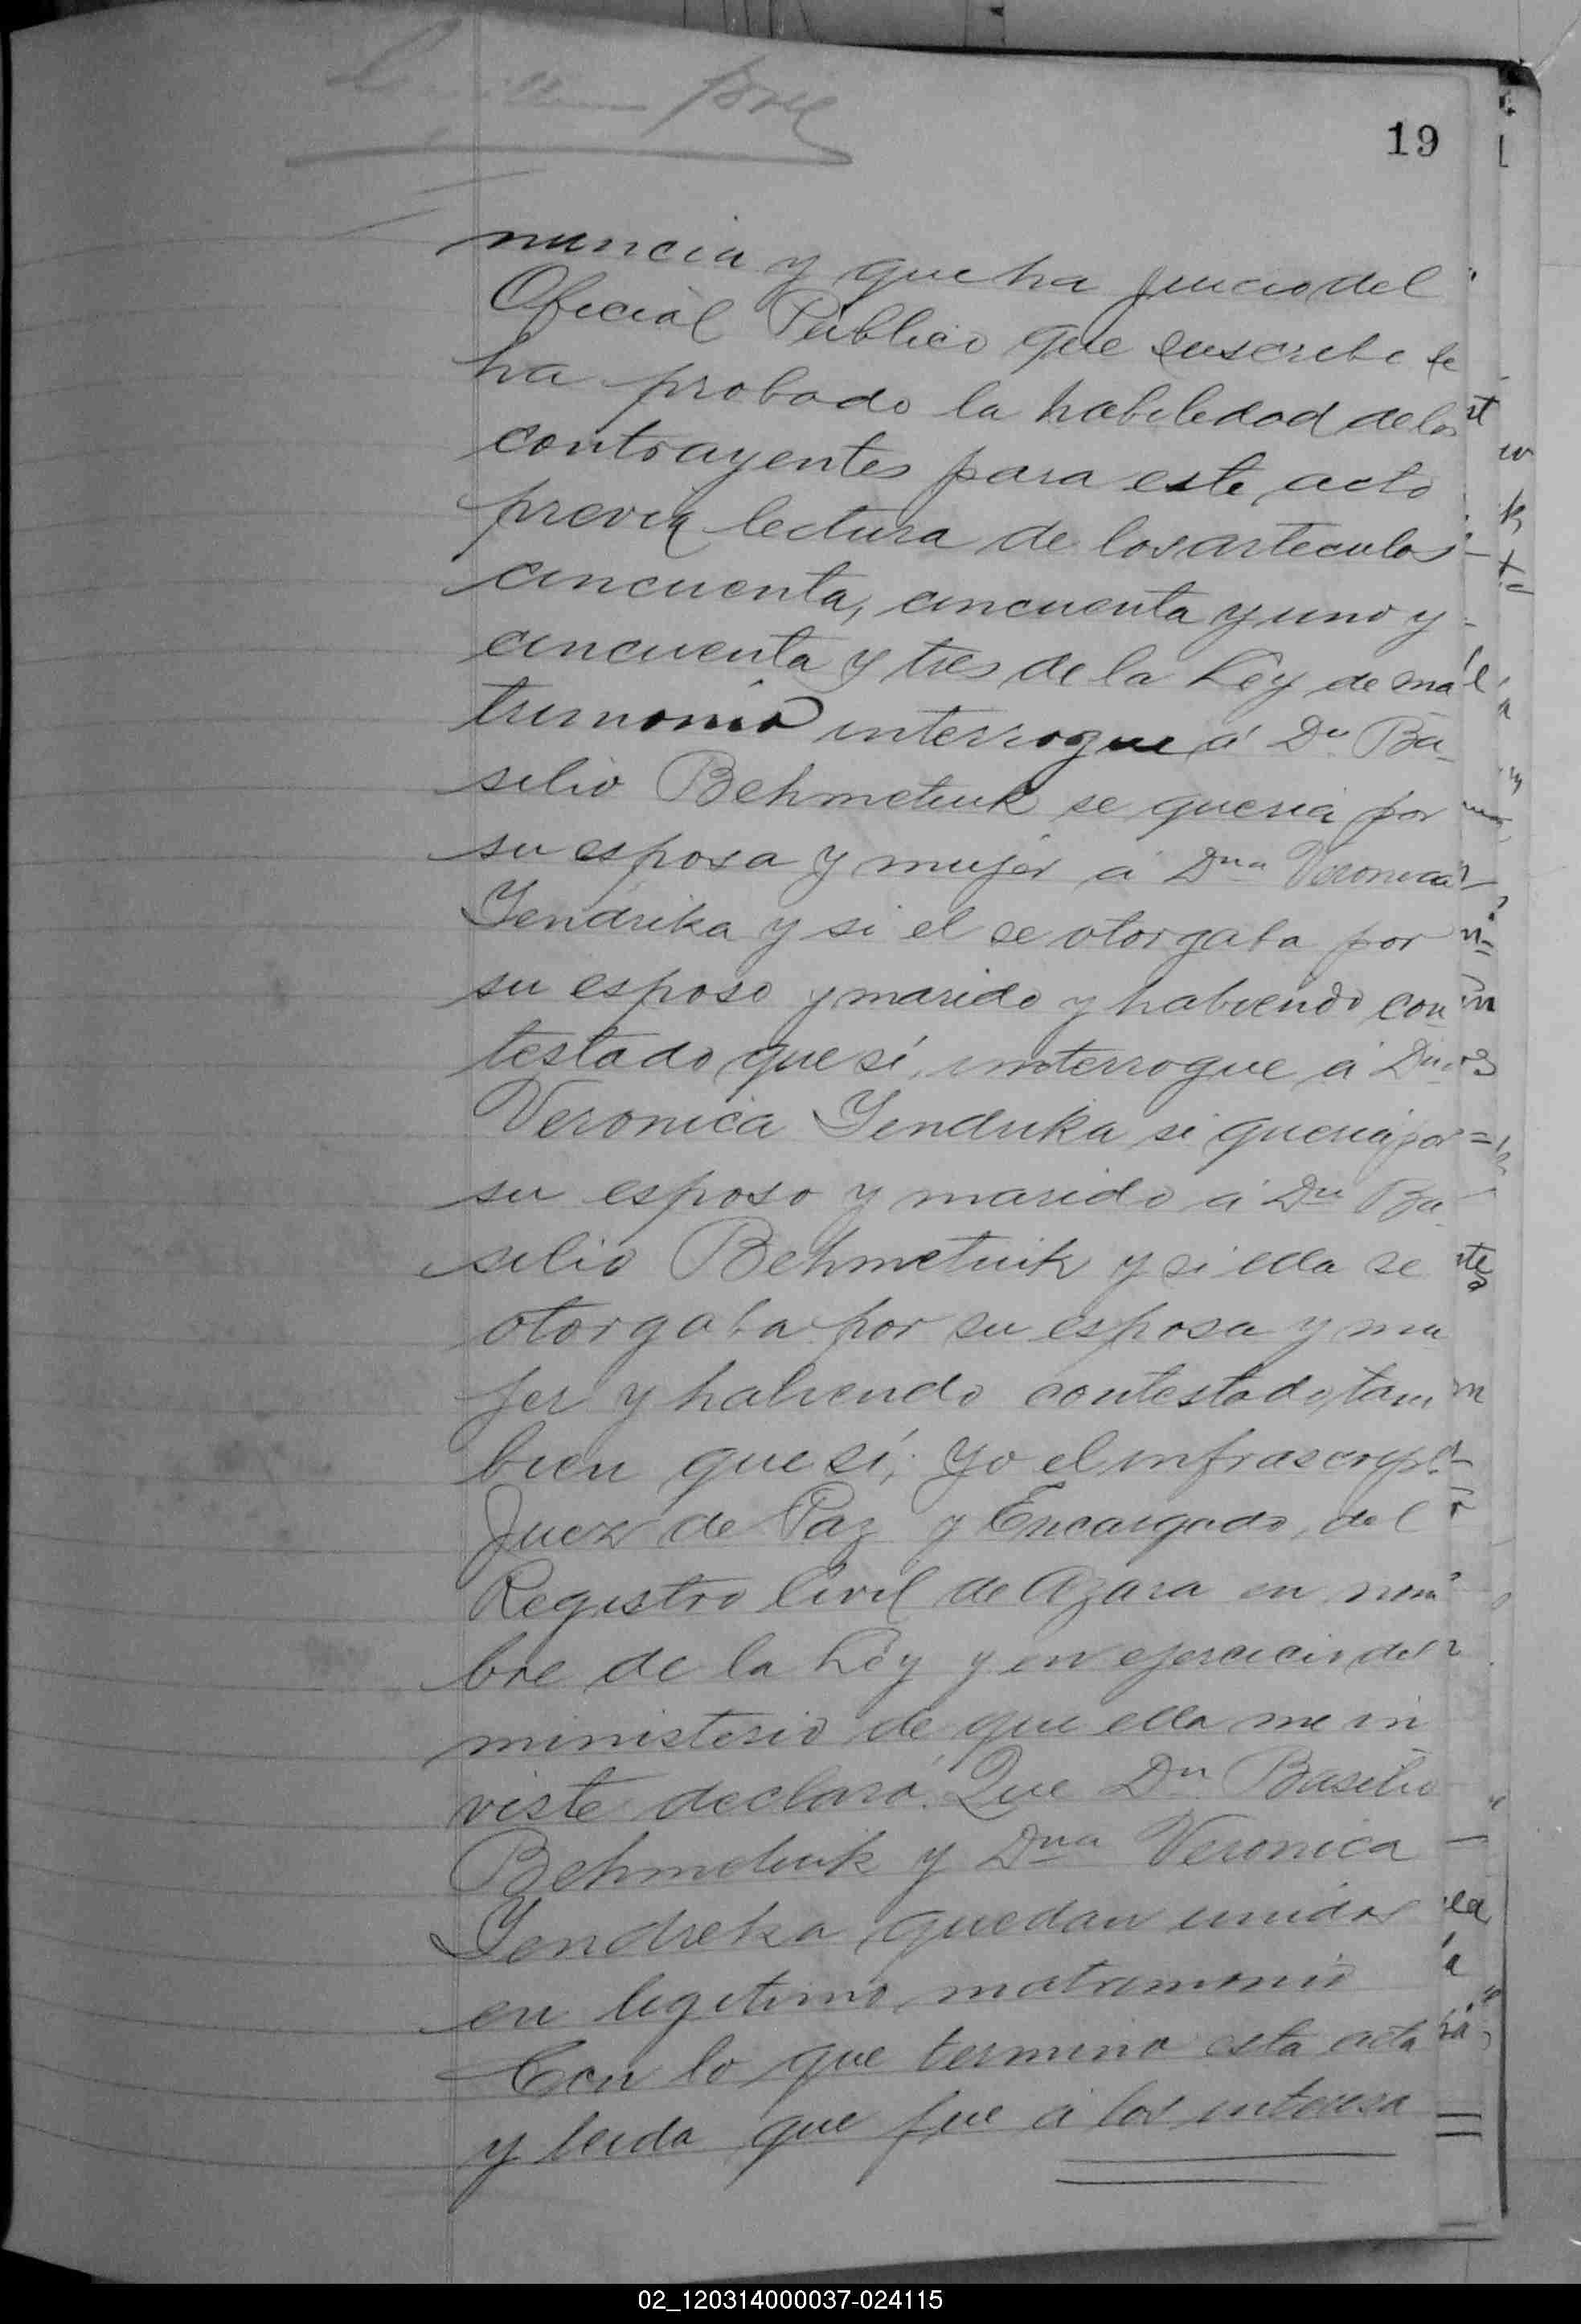 19
nuncia y que ha juicio del
Oficial Público que suscribe se
ha probado la habilidad de los
contrayentes para este acto
previa lectura de los articulos
cincuenta, cincuenta y uno y
cincuenta y tres de la Ley de ma
trimonio interrogue á Dn Ba-
silio Behmetiuk se queria por
su esposa y mujer á Dna Veronica
Yendrika y si el se otorgaba por
su esposo y marido y habiendo con
testado que sí, interrogue á Dna
Veronica Yendrika si queria por
su esposo y marido á Dn Ba
silio Behmetiuk y si ella se
otorgaba por su esposa y mu
jer y habiendo contestado tam
bien que sí; Yo el infrascripto
Juez de Paz y Encargado del
Registro Civil de Azara en nom
bre de la Ley y en ejercicio del
ministerio de que ella me in
viste declaro: Que Dn Basilio
Behmetiuk y Dna Veronica
Yendreka quedan unidos
en legitimo matrimonio
Con lo que termino esta acta
y leida que fue á los interesa
02_120314000037-024115